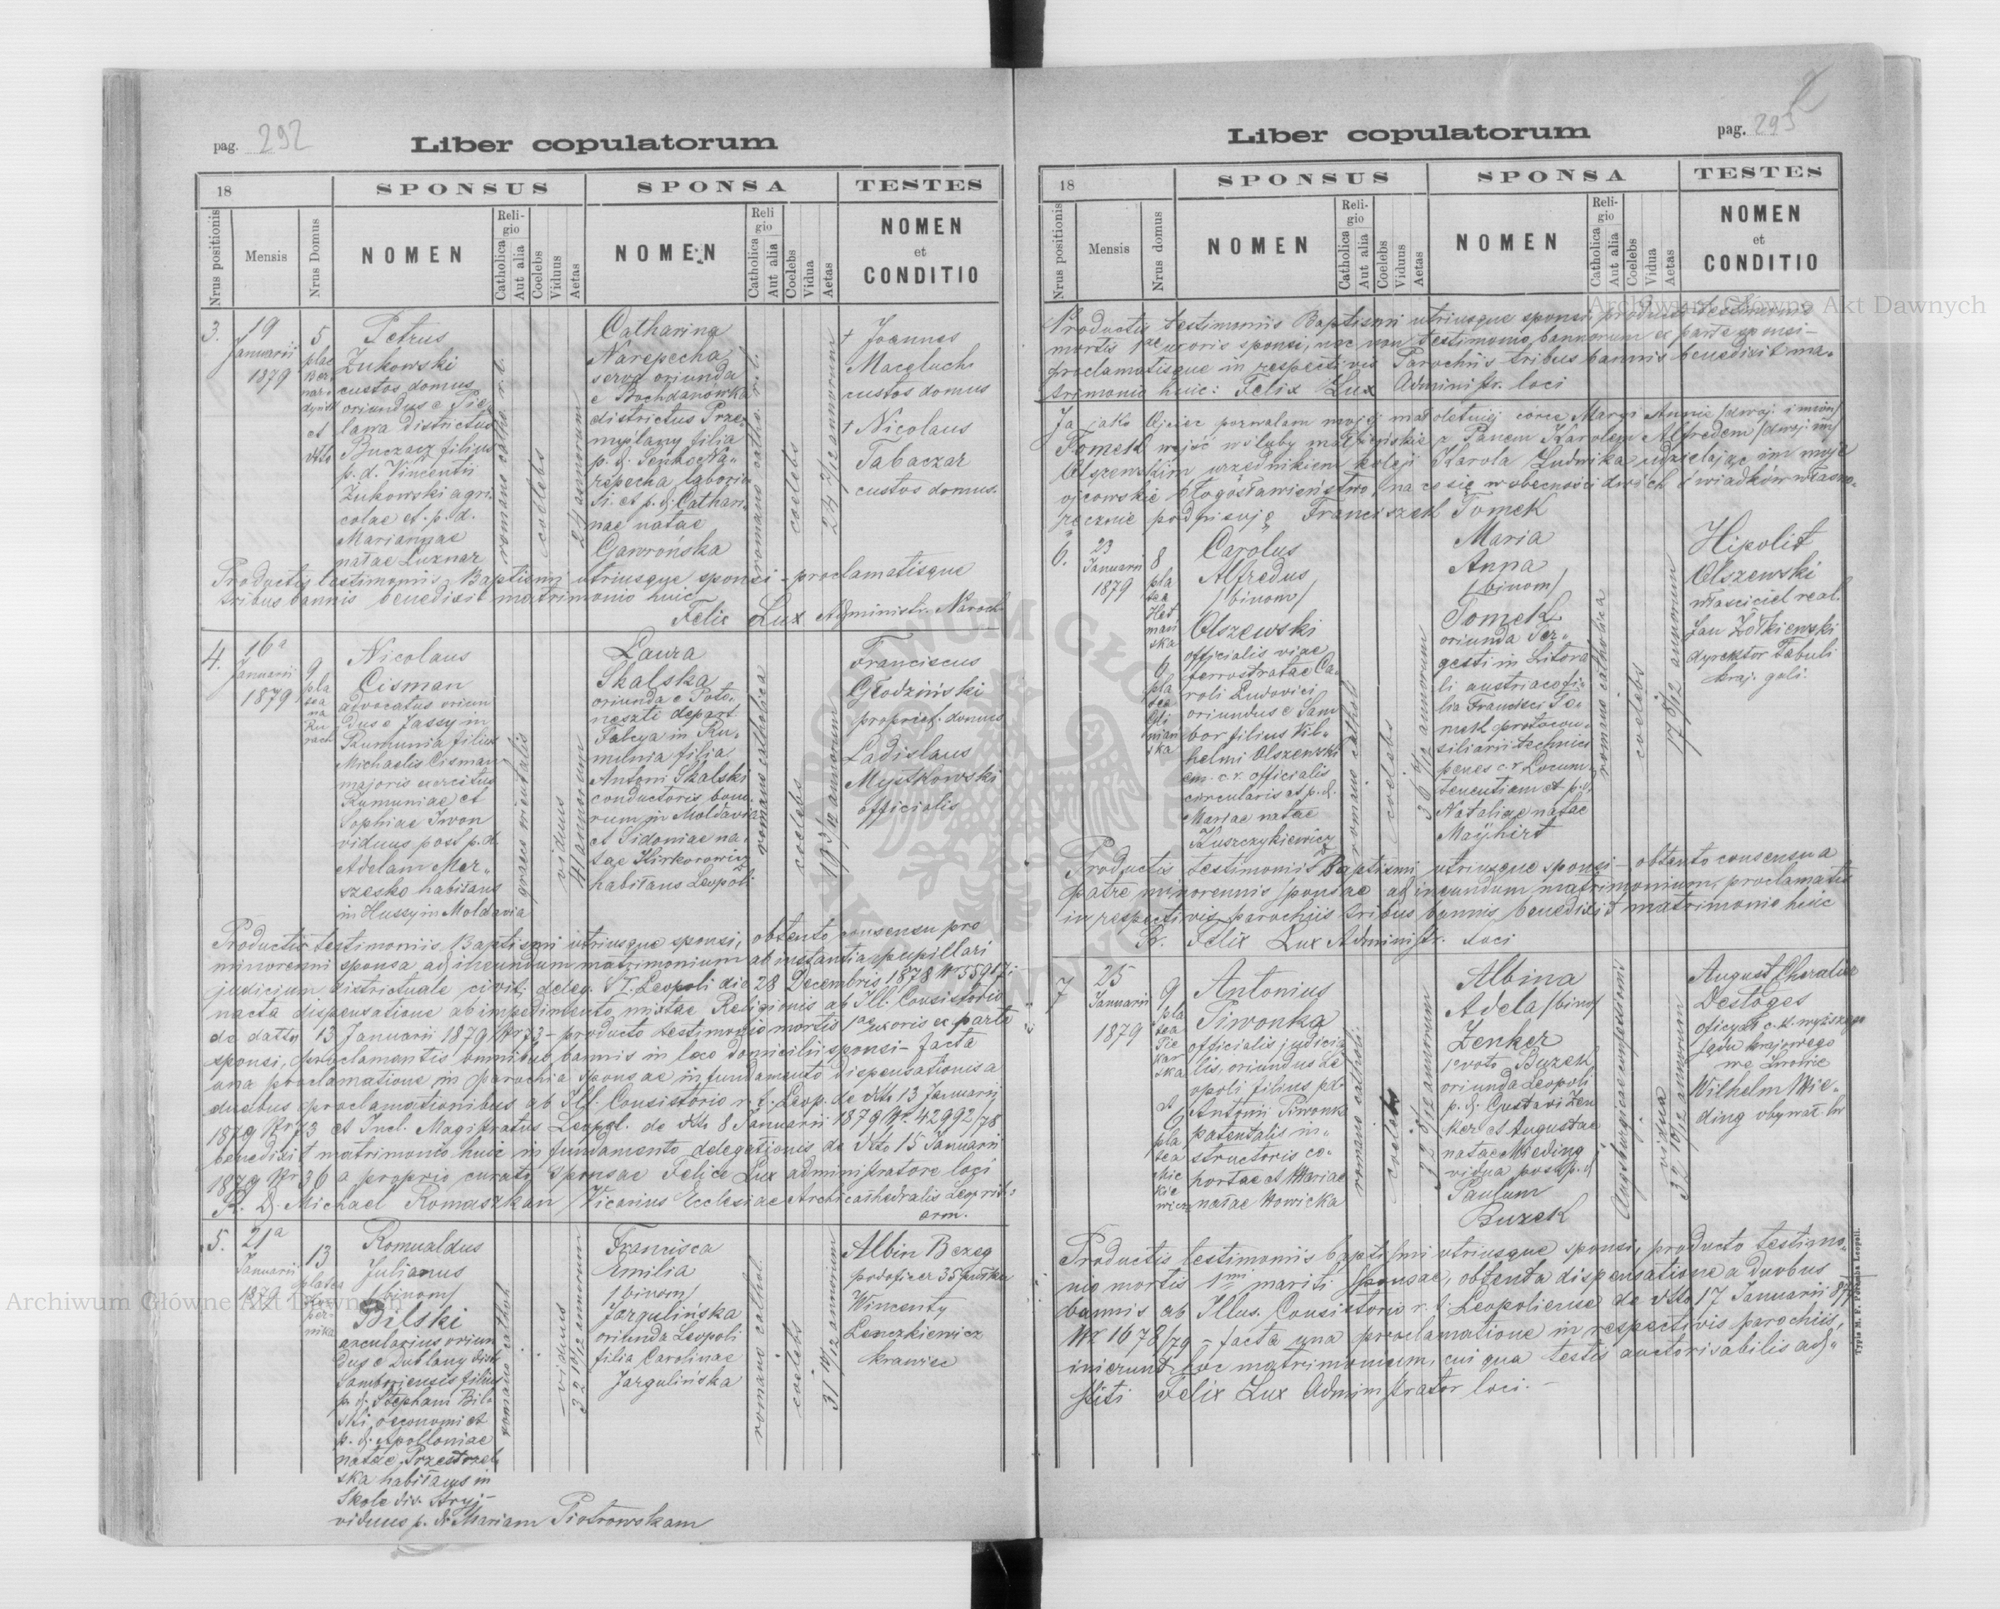 pag. 292
Liber copulatorum
18
SPONSUS
SPONSA
TESTES
Nrus positionis
Mensis
Nrus Domus
NOMEN
Religio
Catholica
Aut alia
Coelebs
Viduus
Aetas
NOMEN
Religio
Catholica
Aut alia
Coelebs
Vidua
Aetas
NOMEN
et
CONDITIO
3.
19
Januarii
1879
5
plac
Ber
nar
et
Petrus
Żukowski
custos domus
oriundus e Pie
lawa districtus
Buczacz filius
p. d. Vincentii
Żukowski agri
colae et p. d.
Mariannae
natae Luznar
romano cathol. r. l.
coelebs
24 annorum
Catharina
Narepecha
serva oriunda
e Bochdanówka
districtus Prze
myślany filia
p. d. Na
repecha, laborio
si et p. d. Cathari
nae natae
Gawrońska
romano cathol. r. l.
coelebs
24 2/12 annorum
+ Joannes
Maceluch
custos domus
+ Nicolaus
Tabaczar
custos domus.
Productis testimoniis Baptismi utriusque sponsi - proclamatisque
tribus bannis benedixit matrimonio huic
Felix Lux Administr. Paroch
4.
16a
Januarii
1879
9
pla
tea
na
Ru
rach
Nicolaus
Cisman
advocatus oriun
dus e Jassy in
Rumunia filius
Michaelis Cisman
majoris exercitus
Rumuniae et
Sophiae Iwon
viduus post p. d.
Adelam Mer-
szesko habitans
in Hussy in Moldavia
graeco orientalis
viduus
41 annorum
Laura
Skalska
oriunda e Poto-
neszti depart
Falcya in Ru-
munia filia
Antoni Skalski
conductoris bono
rum in Moldavia
et Sidoniae na-
tae Kirkorowicz
habitans Leopoli
romano catholica
coelebs
19 3/12 annorum
Franciscus
Głodziński
propriet. domus
Ladislaus
Mystkowski
officialis
Productis testimoniis Baptismi utriusque sponsi, obtento consensu pro
minorenni sponsa ad ineundum matrimonium ab instantia pupillari
judicium districtuale civit. deleg. S. I. Leopoli die 28 Decembris 1878 Nr 55917
nacta dispensatione ab impedimento mixtae Religionis ab Ill. Consistorio
de datto 13 Januarii 1879 Nr 73 - producto testimonio mortis 1ae uxoris ex parte
sponsi, proclamentis omnibus bannis in loco domicilii sponsi - facta
una proclamatione in parochia sponsae in fundamento dispensationis a
duabus proclamationibus ab Ill. Consistorio r. l. Leop. de dtto 13 Januarii
1879 Nr 73 et Incl. Magistratus Leopol. de dtto 8 Januarii 1879 Nr. 42992/78
benedixit matrimonio huic in fundamento delegationis de dtto 15 Januarii
1879 Nr 36 a proprio curato sponsae Felice Lux administratore loci
R. D. Michael Romaszkan Vicarius Ecclesiae Archicathedralis Leop rit:
arm.
5.
21a
Januarii
1879
13
platea
Koper
nika
Romualdus
Julianus
/binom/
Bilski
arcularius oriun
dus e Dublany distr
Samboriensis filius
p. d. Stephani Bil
ski oeconomi et
p. d. Apolloniae
natae Przestrzel
ska habitans in
Skole dis. Stryj-
viduus p. d. Mariam Piotrowskam
romano cathol.
viduus
32 10/12 annorum
Francisca
Emilia
/binom/
Jargulińska
oriunda Leopoli
filia Carolinae
Jargulińska
romano cathol.
coelebs
31 10/12 annorum
Albin Bezeg
podoficer 35 pułku
Wincenty
Lenczkiewicz
krawiec
pag. 293
Liber copulatorum
18
SPONSUS
SPONSA
TESTES
Nrus positionis
Mensis
Nrus domus
NOMEN
Religio
Catholica
Aut alia
Coelebs
Viduus
Aetas
NOMEN
Religio
Catholica
Aut alia
Coelebs
Vidua
Aetas
NOMEN
et
CONDITIO
Productis testimoniis Baptismi utriusque sponsi, producto testimonio
mortis 1ae uxoris sponsi, nec non testimonio bannorum ex parte sponsi -
proclamatisque in respectivis Parochiis tribus bannis benedixit ma-
trimonio huic: Felix Lux Administr. loci
Ja jako Ojciec pozwalam mojej małoletniej córce Maryi Annie /dwoj. imion/
Tomek wejść w śluby małżeńskie z Panem Karolem Alfredem /dwoj. im/
Olszewskim urzędnikiem kolei Karola Ludwika udzielając im moje
ojcowskie błogosławieństwo, na co się w obecności dwóch świadków własno-
ręcznie podpisuję Franciszek Tomek
6.
23
Januarii
1879
8
pla
tea
Het
mań
ska
9
pla
tea
Gli
niań
ska
Carolus
Alfredus
/binom/
Olszewski
officialis viae
ferrostratae Ca
roli Ludovici
oriundus e Sam
bor filius Vil-
helmi Olszewski
em. c. r. officialis
circularis et p. d.
Mariae natae
Kuszczykiewicz
romano cathol.
coelebs
36 /12 annorum
Maria
Anna
/binom/
Tomek
oriunda Ter-
gesti in Litora
li austriaco fi-
lia Francisci To
mek protocon-
siliarii technici
penes c. r. Locum
tenentiam et p. d.
Nataliae natae
Mayhirt
romano catholica
coelebs
17 9/12 annorum
Hipolit
Olszewski
właściciel real.
Jan Żółkiewski
dyrektor Tabuli
kraj. gali.
Productis testimoniis Baptismi utriusque sponsi - obtento consensu a
patre minorennis sponsae ad ineundum matrimonium, proclamatis
in respectivis parochiis tribus bannis benedixit matrimonio huic
R. Felix Lux Administr. loci
7
25
Januarii
1879
9
pla
tea
Pie
kar
ska
et
6
pla
tea
Mic
kie
wicza
Antonius
Piwonka
officialis judicia
lis, oriundus Le
opoli filius p. d.
Antonii Piwonka
patentalis in-
structoris co-
hortae et Mariae
natae Nowicka
romano catholi.
coelebs
32 8/12 annorum
Albina
Adela /bino/
Zenker
1 voto Buzek
oriunda Leopoli
p. d. Gustavi Zen
ker et Augustae
natae Wieding
vidua post p. d.
Paulum
Buzek
Augustanae confessionis
vidua
32 10/12 annorum
August Chevalier
Desloges
oficyał c. k. wyższego
sądu krajowego
we Lwowie
Wilhelm Wie-
ding obywat. lw
Productis testimoniis baptismi utriusque sponsi, producto testimo-
nio mortis 1mi mariti sponsae, obtenta dispensatione a duobus
bannis ab Illus. Consistorio r. l. Leopoliense de dtto 17 Januarii 879
Nr 1678/79 - facta una proclamatione in respectivis parochiis,
inierunt hoc matrimonium, cui qua testis auctorisabilis ad-
stiti Felix Lux Administrator loci. -
Typis M. F. Poremba Leopoli.
Archiwum Główne Akt Dawnych
Archiwum Główne Akt Dawnych
ARCHIWUM GŁÓWNE AKT DAWNYCH